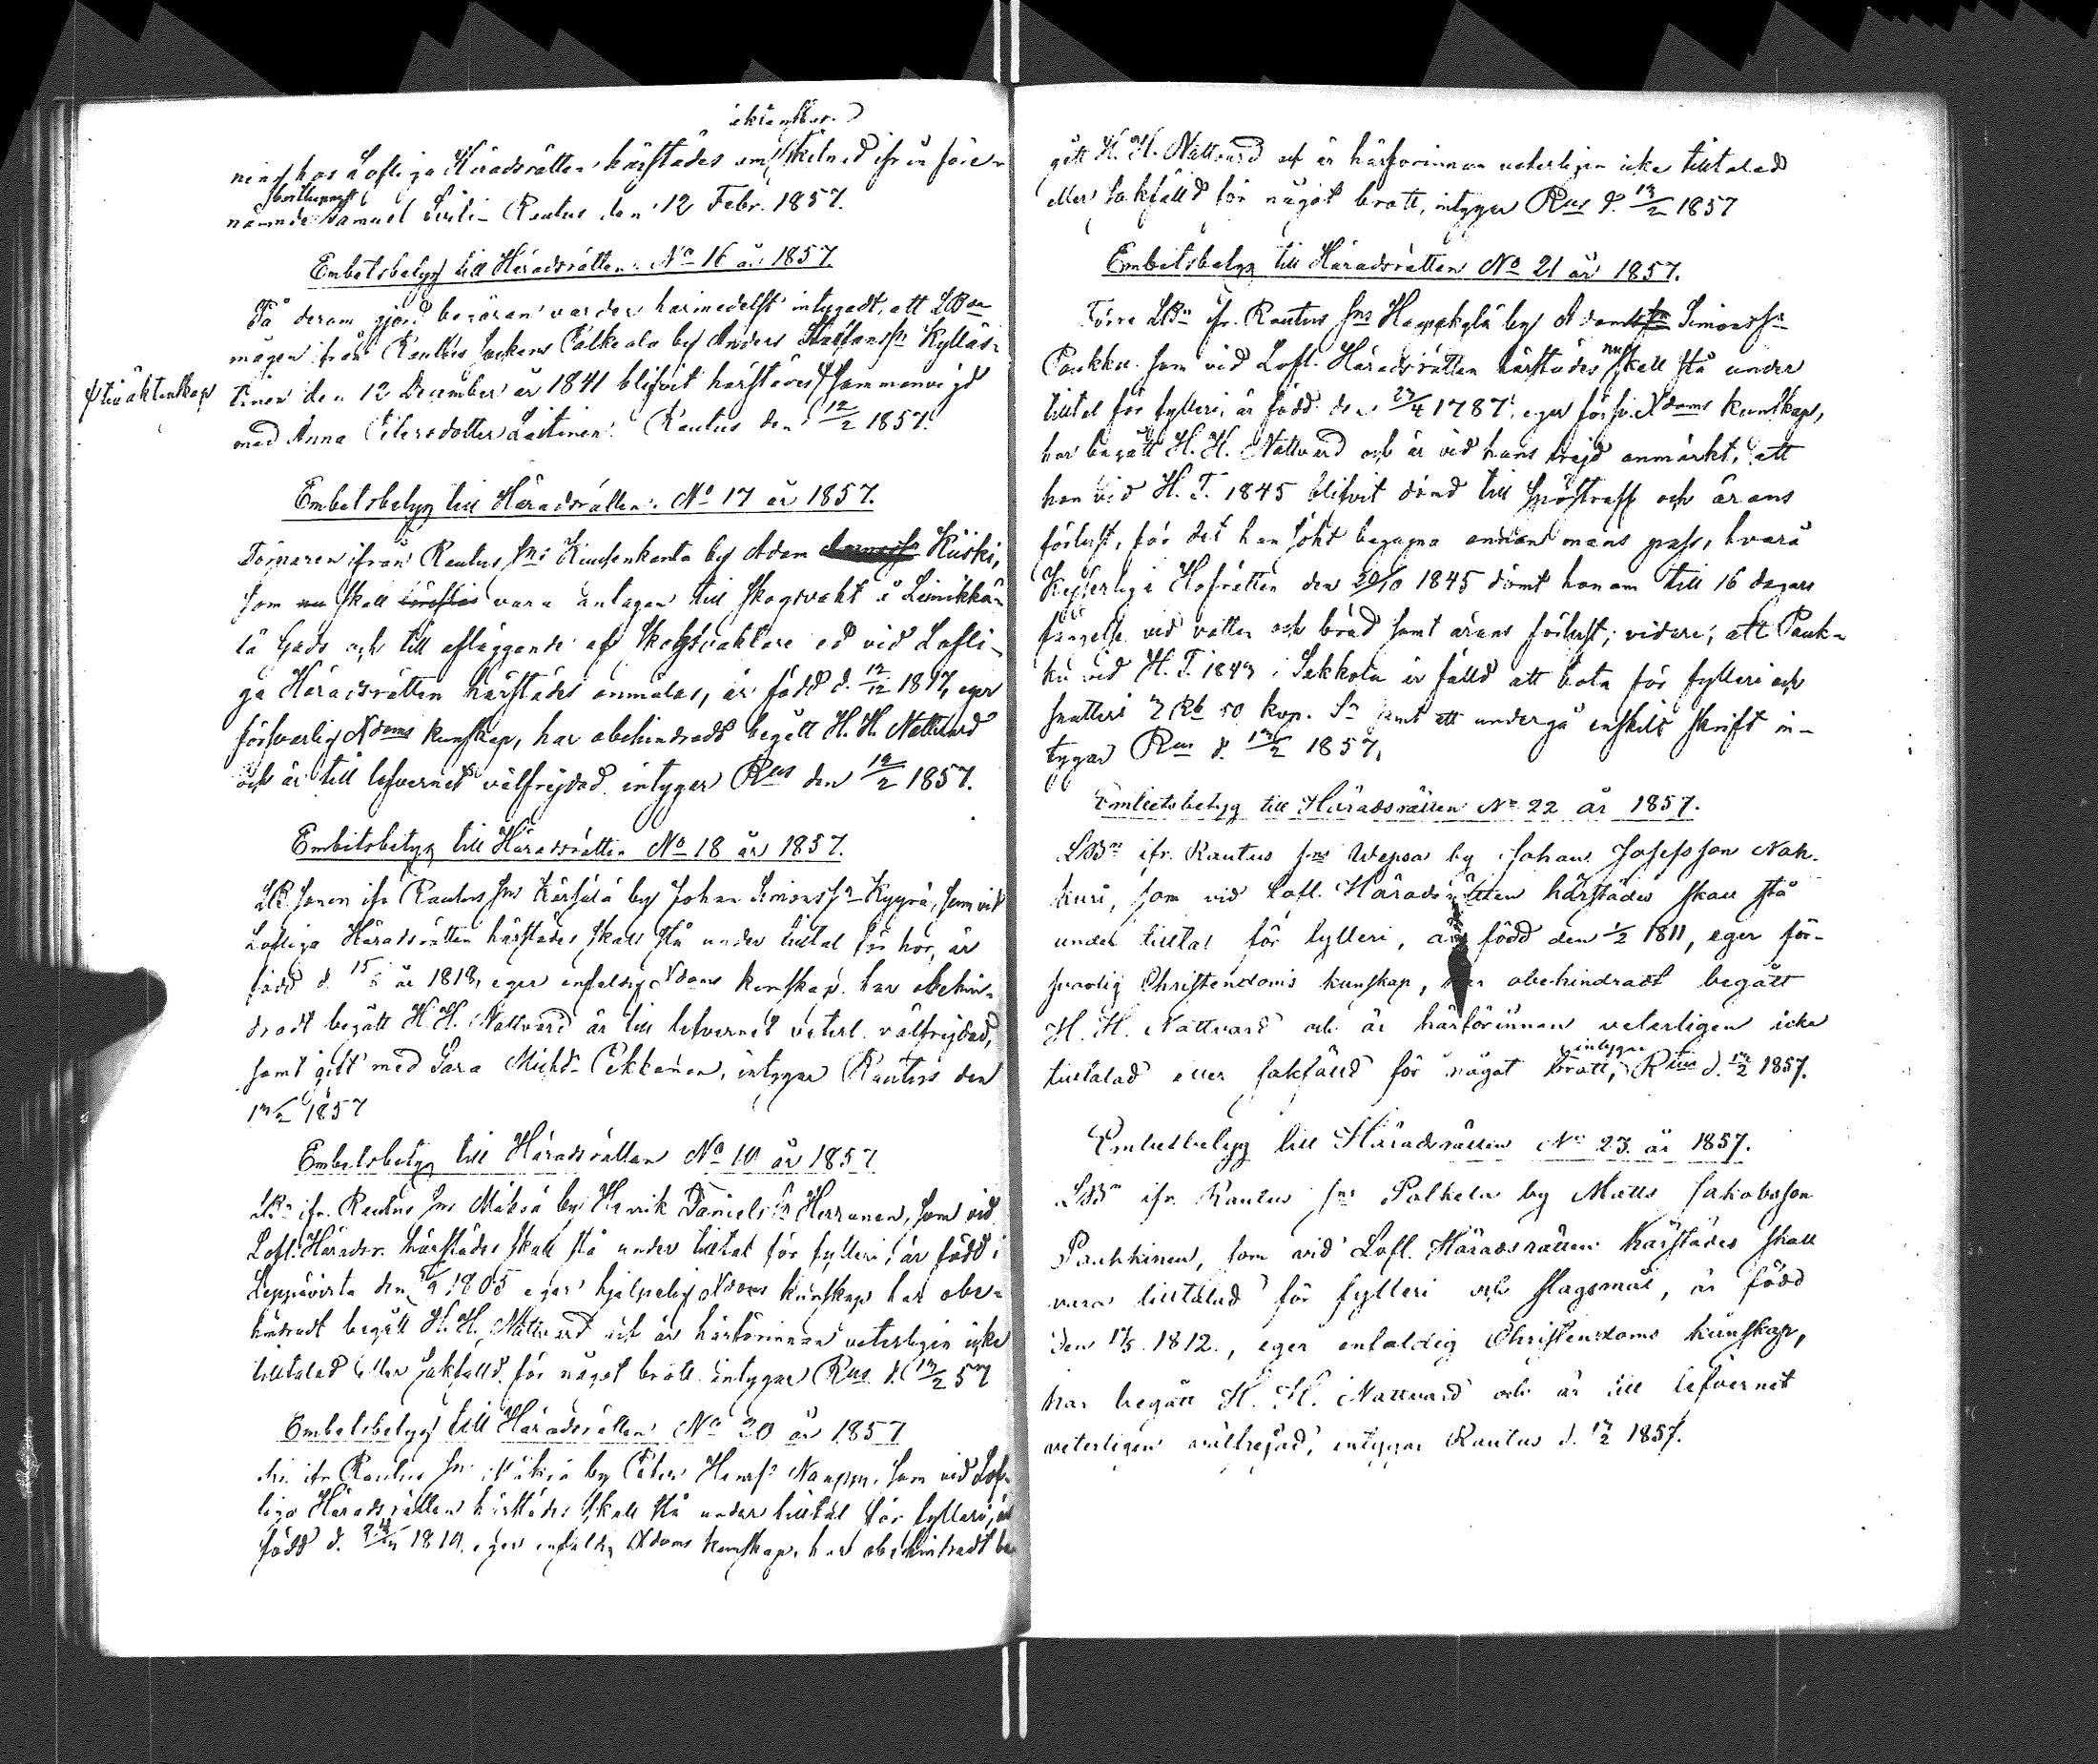 ning hos Lofliga Häradsrätten härstädes om skilnad ifrån före-
nämnde Samuel Rautus den 12 Febr. 1857.
Embetsbetyg till Häradsrätten No 16 år 1857.
På derom gjord begäran varder härmedelst intygadt, att LBde
mågen från Rautus Sockens Palkeala by Anders Staffanssn Kylläs-
tinen den 12 December år 1841 blifvit härstädes sammanvigd
till äktenskap
med Anna Petersdotter Laitinen. Rautus den 12/2 1857.
Embetsbetyg till Häradsrätten No 17 år 1857.
Torparen ifrån Rautus Sns by Adam Kiiski,
som skall vara antagen till skogsvakt å
lä Gods och till afläggande af skogsvaktare ed vid Lofli-
ga Häradsrätten härstädes anmälas, är född d. 12/12 1817, eger
försvarlig Xdoms kunskap, har obehindradt begått H. H. Nattvard
och är till lefvernet välfrejdad, intygar Rus den 12/2 1857.
Embetsbetyg till Häradsrätten No 18 år 1857.
LB sonen ifr Rautus Sns by Johan Simonssn Kyyrä, som vid
Lofliga Häradsrätten härstädes skall stå under tilltal för hor, är
född d. år 1818, eger enfaldig Xdoms kunskap, har obehin-
dradt begått H. H. Nattvard är till lefvernet veterl. välfrejdad,
samt gift med Sara Michsdr Pekkanen, intygar Rautus den
13/2 1857
Embetsbetyg till Häradsrätten No 19 år 1857
LBn ifr. Rautus Sns Mäkrä by Henrik Danielssn Herranen, som vid
Lofl. Häradsr. härstädes skall stå under tilltal för fylleri, är född i
Leppävirta den 1805 eger hjelpelig Xdoms kunskap har obe-
hindradt begått H. H. Nattvard och är härförinnan veterligen icke
tilltalad eller sakfälld för något brott intygar Rus d. 13/2 57
Embetsbetyg till Häradsrätten No 20 år 1857
ifr Rautus Sns Mäkrä by Peter Henrssn som vid Lof-
liga Häradsrätten härstädes skall stå under tilltal för fylleri, är
född d. 1819. eger enfaldig Xdoms kunskap, har obehindradt be-
gått H. H. Nattvard och är härförinnan veterligen icke tilltalad
eller sakfälld för något brott, intygar Rus d. 13/2 1857
Embetsbetyg till Häradsrätten No 21 år 1857.
Förre LBn ifr. Rautus Sns Haapakylä by Adam Simonssn
Paukku som vid Lofl. Häradsrätten härstädes nu skall stå under
tilltal för fylleri, är född den 27/4 1787, eger försv. Xdoms kunskap,
har begått H. H. Nattvard och är vid hans frejd anmärkt, att
han vid H. T. 1845 blifvit dömd till spöstraff och ärans
förlust, för det han sökt begagna annan mans pass, hvarå
Kejserliga Hofrätten den 20/10 1845 dömt honom till 16 dagars
fängelse vid vatten och bröd samt ärans förlust; vidare, att Pauk-
ku vid H. T. 1849 i Sakkola är fälld att böta för fylleri och
svalleri 2 Rb 50 kop. Sr samt att undergå enskilt skrift in-
tygar Rus d. 13/2 1857.
Embetsbetyg till Häradsrätten No 22 år 1857.
LBn ifr. Rautus Sns Wepsa by Johan Josefsson Nah-
kuri, som vid Lofl. Häradsrätten härstädes skall stå
under tilltal för fylleri, är född den 1/2 1811, eger för-
svarlig Christendoms kunskap, har obehindradt begått
H. H. Nattvard och är härförinnan veterligen icke
tilltalad eller sakfälld för något brott, intygar Rus d. 13/2 1857.
Embetsbetyg till Häradsrätten No 23. år 1857.
LBn ifr. Rautus Sns Palkela by Matts Jakobsson
Paukkinen, som vid Lofl. Häradsrätten härstädes skall
vara tilltalad för fylleri och slagsmål, är född
den 1812., eger enfaldig Christendoms kunskap,
har begått H. H. Nattvard och är till lefvernet
veterligen välfrejdad, intygar Rautus d. 13/2 1857.